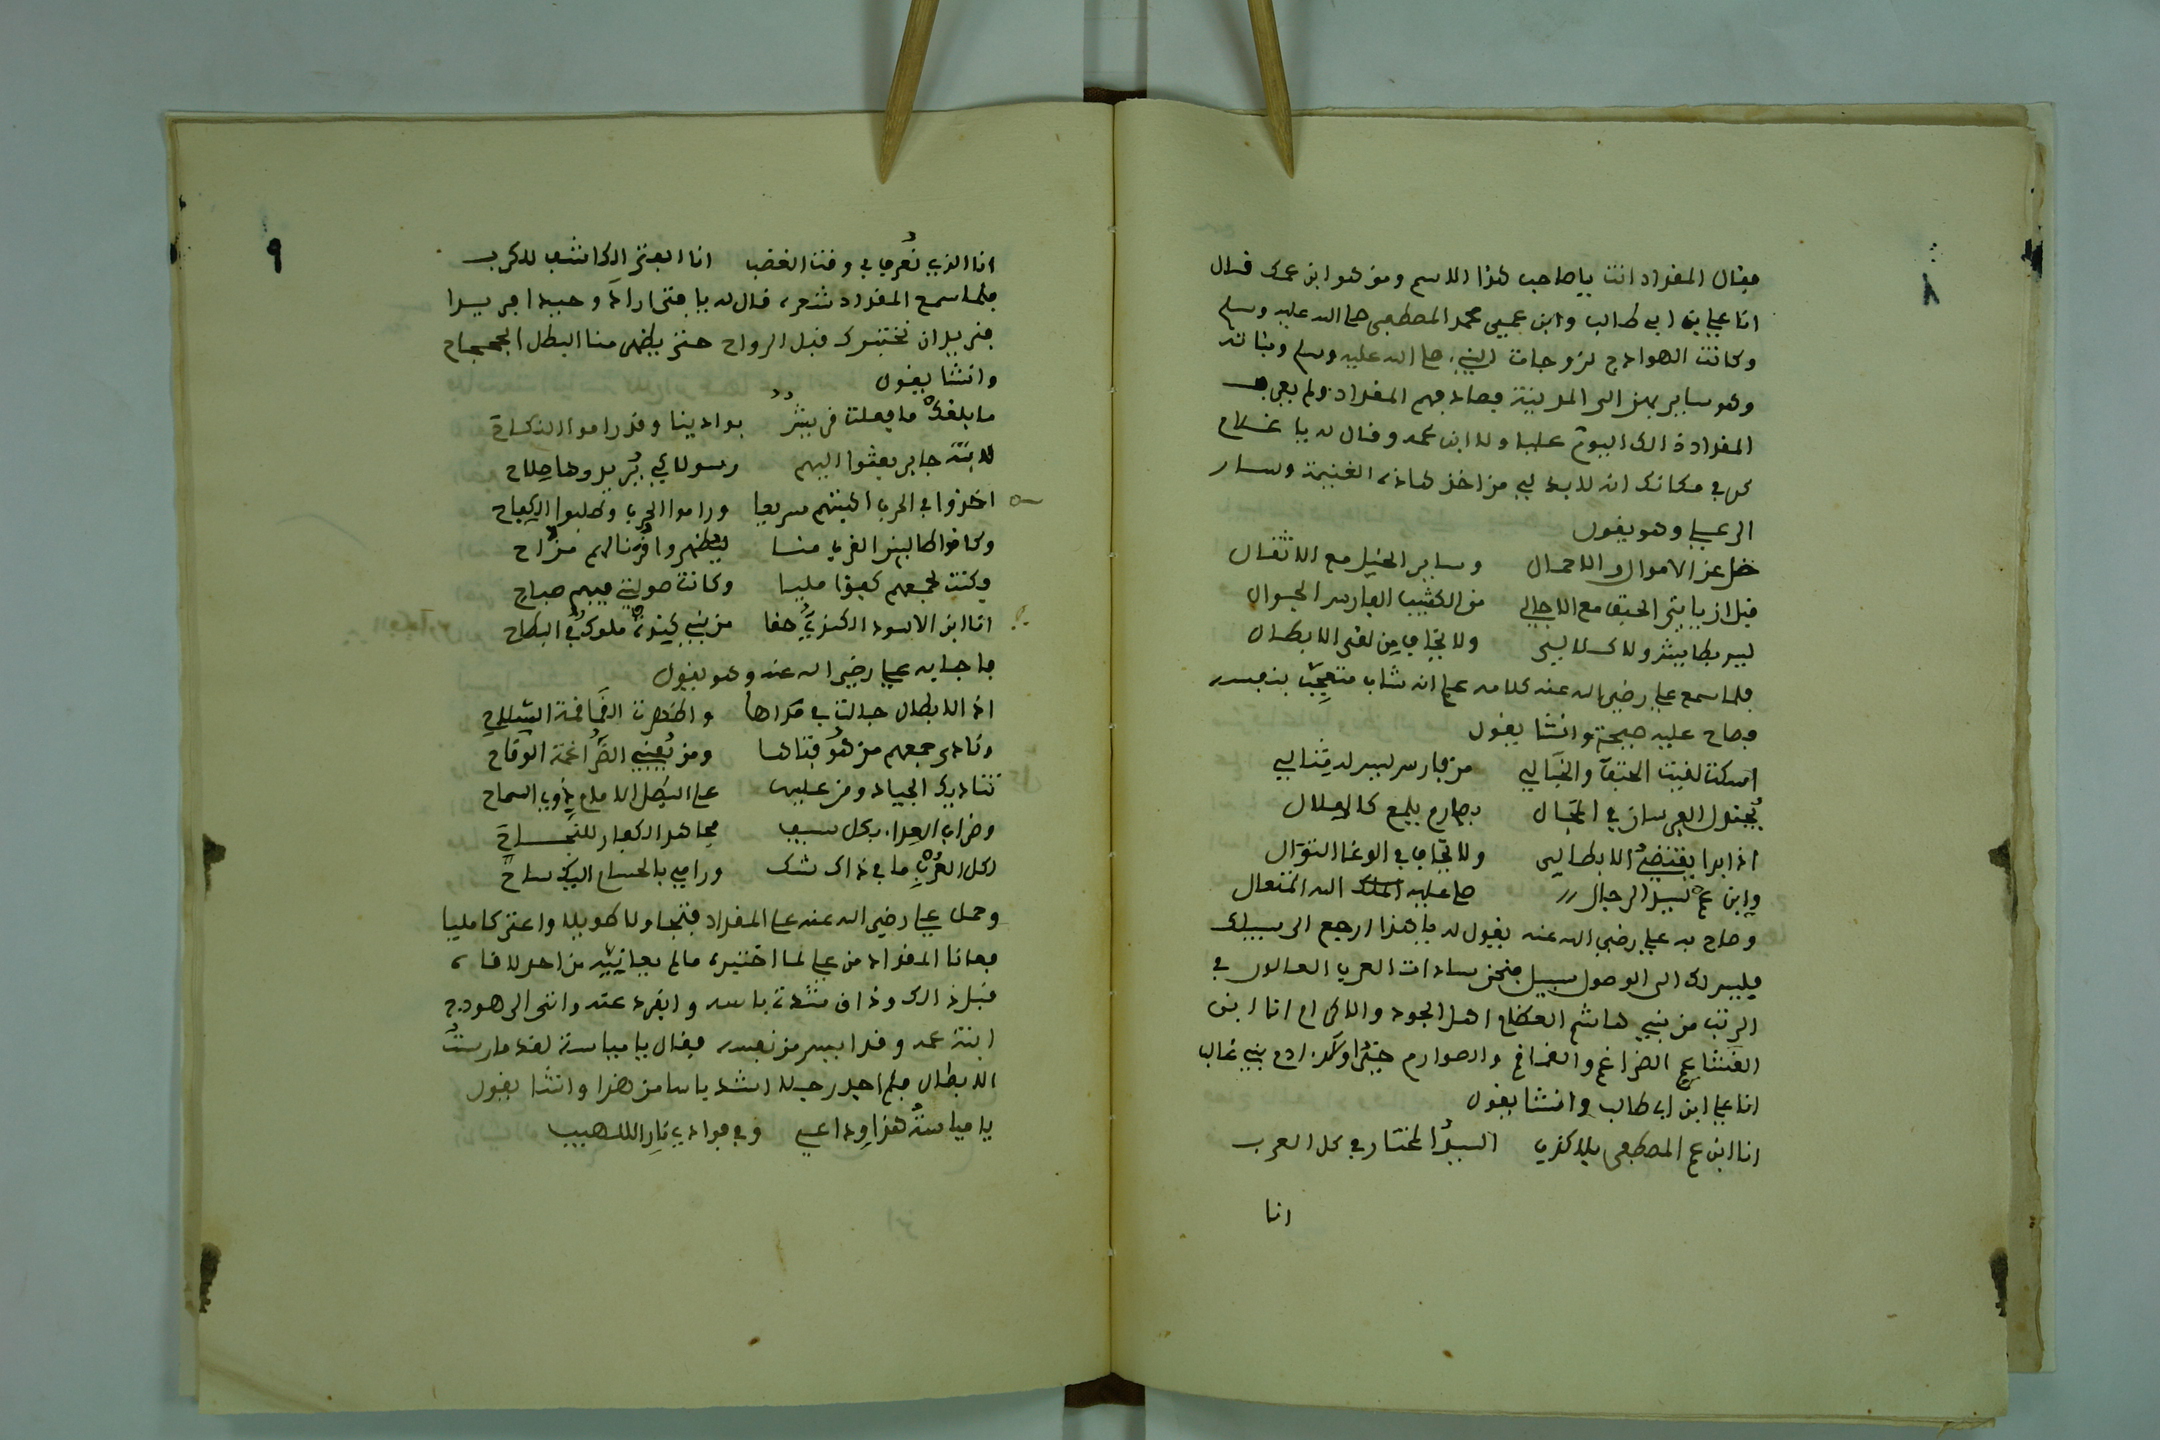 ٨
فقال المقداد انت ياصاحب هذا الاسم ومن هو ابن عمك قال
انا علي بن ابي طالب وابن عمي محمد المصطفى صلى الله عليه وسلم
وكانت الهوادج لزوجات النبي صلى الله عليه وسلم وبناته
وهو ساير بهن الى المدينة فصادفهم المقداد ولم يعرف
المقداد ذالك اليوم عليا ولا ابن عمه وقال له يا غلام
كن في مكانك انه لا بد لي من اخذ هاذه الغنيمة وسار
الى علي وهو يقول
خل عن الاموال والاحمال وساير الخيل مع الاثقال
قبل ان ياتي الحتف مع الاجالي من الكثيب الفارس الجوال
ليس بطايش ولا كسلالي ولا يخاف من لقى الابطال
فلما سمع علي رضي الله عنه كلامه علم انه شاب متعجب بنفسه
فصاح عليه صيحة وانشا يقول
امسكت لقيت الحتف والخبالي من فارس ليس له مثالي
يجول الفرسان في المجال بصارم يلمع كالهلال
اذا بدا يقتضي الابطالي ولا يخاف في الوغا النزال
وابن عم سيد الرجال صلى عليه الملك الله المتعال
وصاح به علي رضي الله عنه يقول له يا هذا ارجع الى سبيلك
فليس لك الى الوصول سبيل فنحن سادات العرب العالون في
الرتب من بني هاشم العظام اهل الجود والاكرام انا ابن
الضراغم والقماقم والصوارم بني غالب
انا علي ابن ابي طالب وانشا يقول
انا ابن عم المصطفى بلا كذب السيد المختار في كل العرب
انا
٩
انا الذي نعرف في وقت الغضب انا الفتى الكاشف للكرب
فلما سمع المقداد شعره قال له يا فتى اراك وحيدا فريدا
فنريد ان نختبرك قبل الرواح حتى يظهر منا البطل الجحجاح
وانشا يقول
ما بلغك ما فعلت في بوادينا وقد راموا النكاح
لابنة جابر بعثوا اليهم رسولا كي يريدوها صلاح
اخذوا في الحرب اليتهم سريعا وراموا الحرب وطلبوا الكفاح
وكانوا طالبين القرب منا ليظهروا
وكنت لجمعهم كهفا مليا وكانت صولتي فيهم صباح
انا ابن الاسود الكندي حقا من بني كندة ملوك في البطاح
فاجابه علي رضي الله عنه وهو يقول
اذ الابطال جالت في واظهرت القماقمة السلاح
ونادى جمعهم من هو فتاها ومن يفني الضراغمة الوقاح
تناديك الجياد ومن عليها على البطل الامام ذوي السماح
وضراب العدا بكل سيف مجاهد الكفار للنجاح
لكل العرب ما في ذاك شك ورامي بالحسام
وحمل علي رضي الله عنه على المقداد فتجاولا طويلا واعتركا مليا
فعانا المقداد من علي لما اختبره مالم يعانيه من احد لاقاه
قبل ذالك وذاق شدة باسه وانفرد عنه واتى الى هودج
ابنة عمه وقد ايس من نفسه فقال يا مياسة لقد مارست
الابطال فلم اجد رجلا اشد باسا من هذا وانشا يقول
يا مياسة هذا وداعي وفي فوادي نار اللهيب